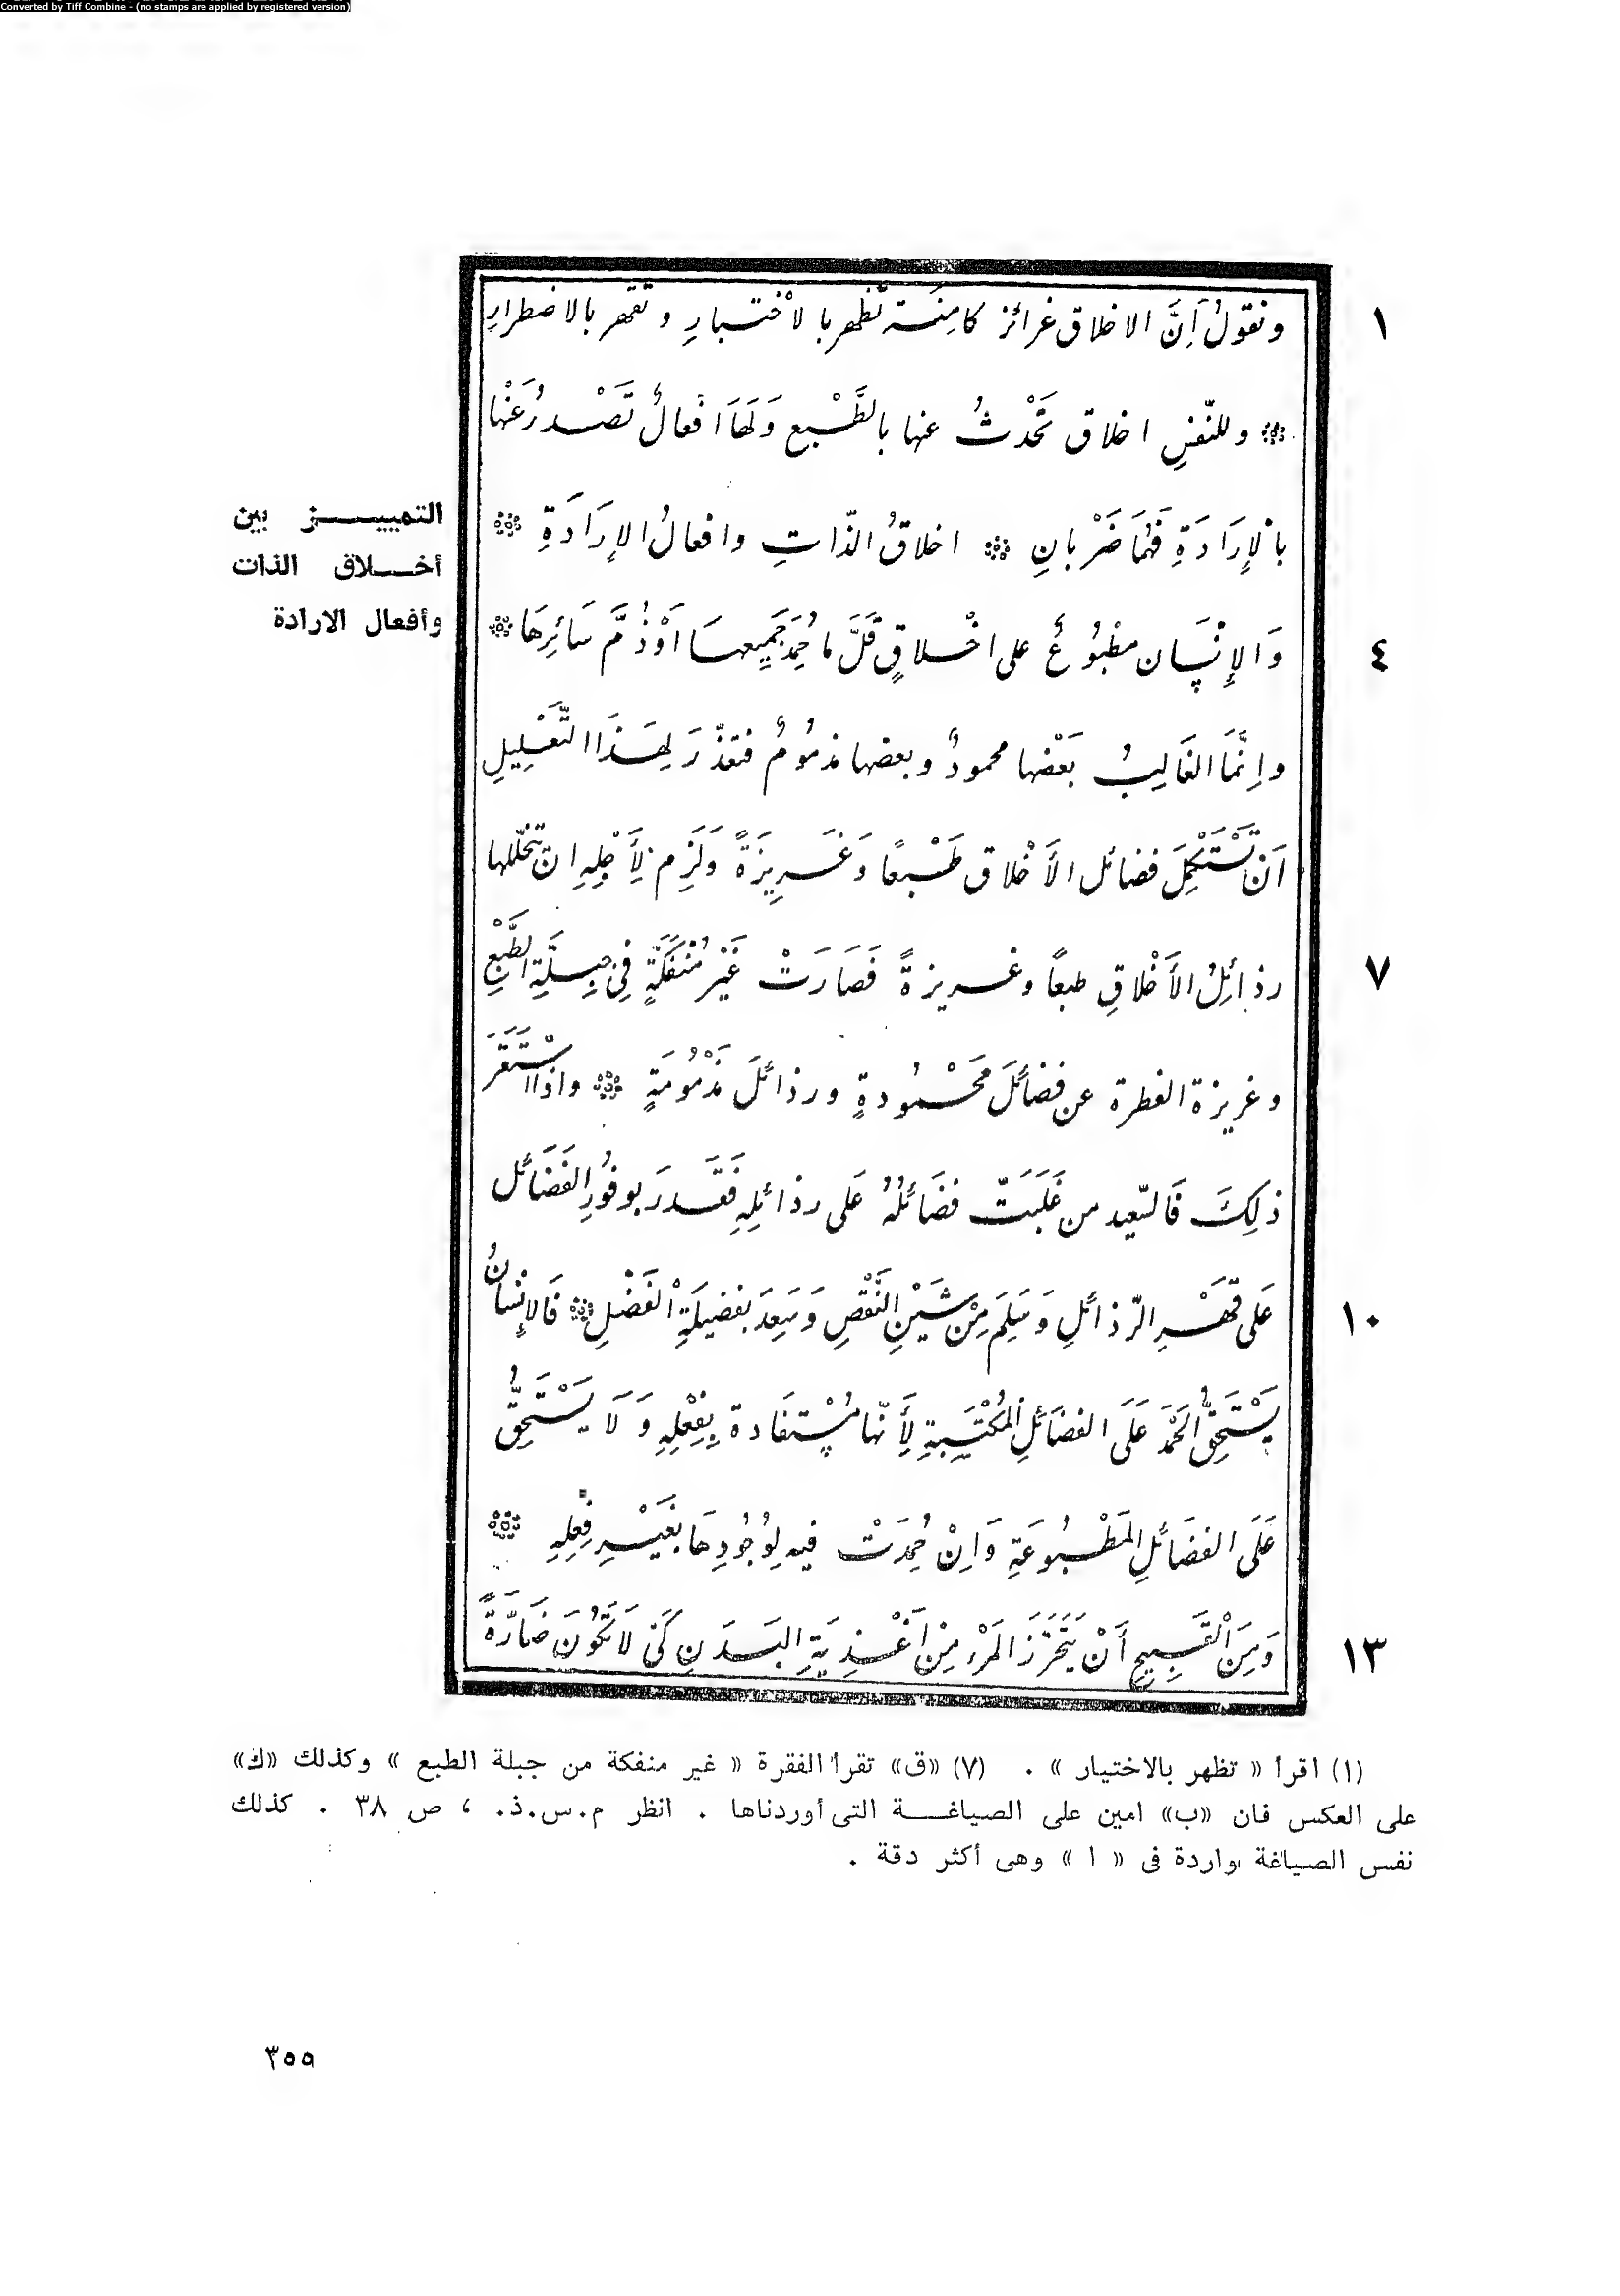 Converted by Tiff Combine - (no stamps are applied by registered version)
١
ونقولُ اَنَّ الاخلاق غرائز كامِنَـة تظهر بالاْختـبارِ وتقهر بالاضطرارِ
❊ وللنّفسِ اخلاق تَحْدثُ عنها بالطَّبْـعِ وَلَهَا افعالٌ تَصْدرُ عَنْها
بالإِرَادَةِ فَهُمَا ضَرْبانِ ❊ اخلاقُ الذّاتِ وافعالُ الإِرَادَةِ ❊
٤
وَالإِنْسَان مطْبُوعٌ على اخْلاقٍ قَلَّ ما حُمِدَ جَمِيعهـا اَوْ ذُمَّ سَائِرِهَا ❊
التمييـــــز بين
أخـــلاق الذات
وأفعال الارادة
وإِنَّمَا الغَالِبُ بَعْضها محمودٌ وبعضها مذمُومٌ فتعَذّرَ لِهَـذَا التَّعْـلِيلِ
اَنْ تَسْتَكْمِلَ فضائل الأَخْلاق طَبْـعًا وَغَـرِيزَةً وَلَزِم لِأَجْلِهِ ان تتخلّلها
٧
رذائِلُ الأَخْلاقِ طبعًا وغـريزةً فَصَارَتْ غَيْر مُنْفَكَّةٍ فِي جِبِـلَّةِ الطَّبْعِ
وغريزة الفطرة عن فضائلَ مَحْـمُودةٍ ورذائلَ مَذْمُومَةٍ ❊ واذا اسْتَقَرَّ
ذلِكَ فَالسّعِيد من غَلَبَتْ فضَائلُهُ عَلى رذائلِهِ فَقَـدرَ بوفُورِ الفَضَائل
١٠
عَلى قَهْـرِ الرّذائلِ وَسَلِمَ مِنْ شَيْنِ النَّقْصِ وَسَعِدَ بفضيلَةِ الْفَضْلِ ❊ فَالإِنْسانُ
يَسْتَحِقُّ الحَمْدَ عَلَى الفضَائلِ المُكْتَسَبةِ لِأَنّها مُسْتفَادة بِفِعْلِهِ وَلَا يَسْتَحِقُّ
عَلَى الفضَائلِ المَطْـبُوعَةِ وَاِنْ حُمِدَتْ فيه لِوُجُودِهَا بغَيْـرِ فِعْلِهِ ❊
١٣
وَمِنَ الْقَـبِيحِ أَنْ يَتَحَرَّزَ المَرْء مِنْ اَغْـذِيَةِ البَـدَنِ كَيْ لَا تَكُونَ ضَارَّةً
(١) اقرأ « تظهر بالاختيار » . (٧) «ق» تقرأ الفقرة « غير منفكة من جبلة الطبع » وكذلك «ك»
على العكس فان «ب» امين على الصياغـــة التى أوردناها . انظر م.س.ذ. ، ص ٣٨ . كذلك
نفس الصياغة واردة فى « ا » وهى أكثر دقة .
٣٥٥